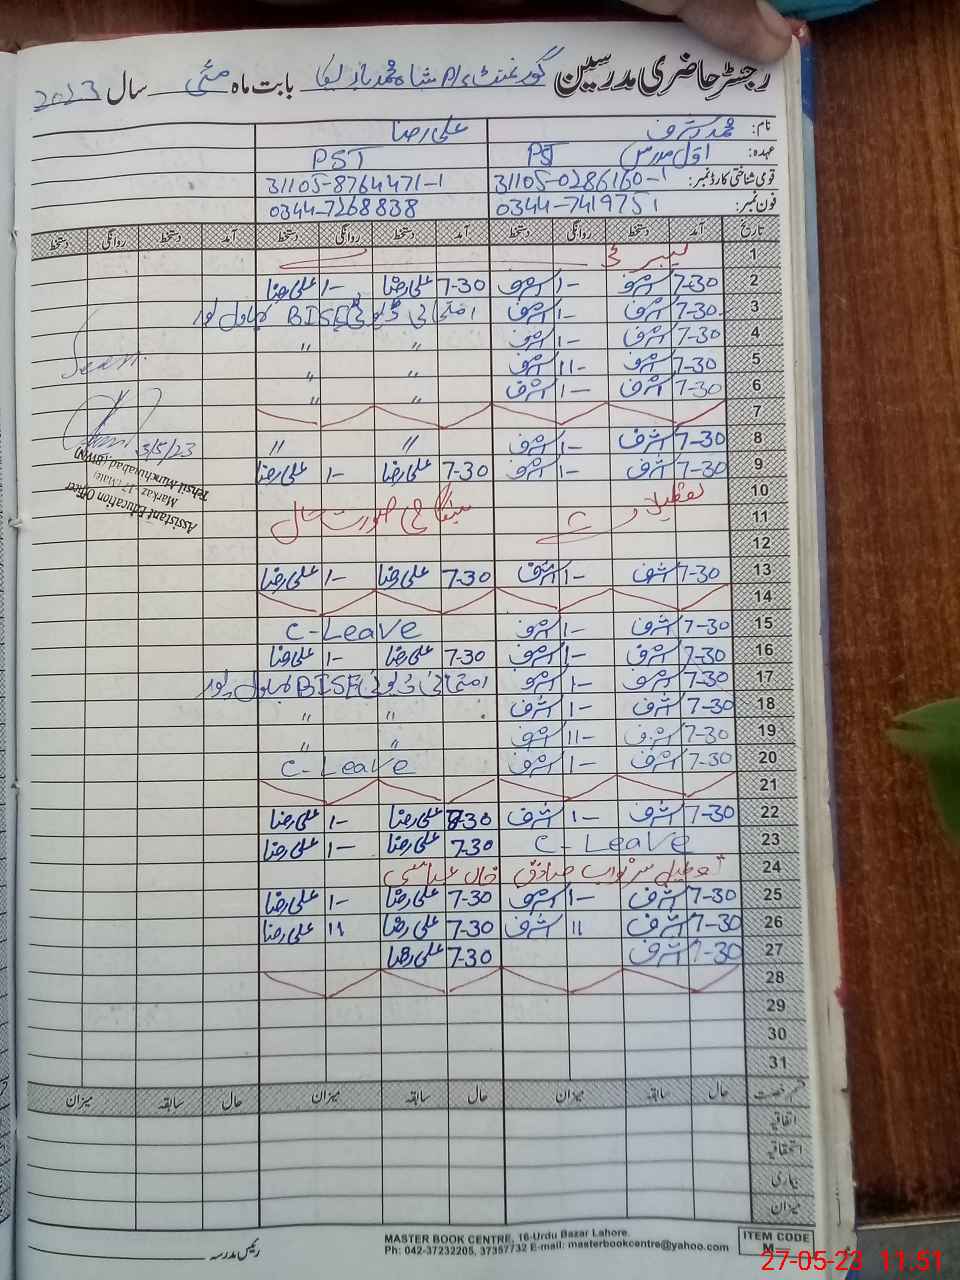 رجسٹر حاضری مدرسین گورنمنٹ P/S شاہ محمد بابت ماہ مئی سال 2023
نام: محمد اشرف علی رضا
عہدہ: اول مدرس PST PST
قومی شناختی کارڈ نمبر: 31105-0286160-1 31105-8764471-1
فون نمبر: 0344-7419751 0344-7268838
تاریخ آمد دستخط روانگی دستخط آمد دستخط روانگی دستخط آمد دستخط روانگی دستخط
1 لیبر ڈے
2 7-30 اشرف 1- اشرف 7-30 علی رضا 1- علی رضا
3 7-30 اشرف 1- اشرف امتحانی ڈیوٹی BISE بہاول پور
4 7-30 اشرف 1- اشرف " "
5 7-30 اشرف 11- اشرف " "
6 7-30 اشرف 1- اشرف " "
7
8 7-30 اشرف 1- اشرف " "
3/5/23
9 7-30 اشرف 1- اشرف 7-30 علی رضا 1- علی رضا
Assistant Education Officer
Tehsil Minchinabad (BWN)
10 تعطیلات
11 ہنگامی صورت حال
12
13 7-30 اشرف 1- اشرف 7-30 علی رضا 1- علی رضا
14
15 7-30 اشرف 1- اشرف C-Leave
16 7-30 اشرف 1- اشرف 7-30 علی رضا 1- علی رضا
17 7-30 اشرف 1- اشرف امتحانی ڈیوٹی BISE بہاول پور
18 7-30 اشرف 1- اشرف " "
19 7-30 اشرف 11- اشرف " "
20 7-30 اشرف 1- اشرف C-Leave
21
22 7-30 اشرف 1- اشرف 7-30 علی رضا 1- علی رضا
23 C-Leave 7-30 علی رضا 1- علی رضا
24 تعطیل سر نواب صادق خان عباسی
25 7-30 اشرف 1- اشرف 7-30 علی رضا 1- علی رضا
26 7-30 اشرف 11 اشرف 7-30 علی رضا 11 علی رضا
27 7-30 اشرف 7-30 علی رضا
28
29
30
31
قسم رخصت حال سابقہ میزان حال سابقہ میزان حال سابقہ میزان
اتفاقیہ
استحقاقیہ
بیماری
میزان
رئیس مدرسہ
MASTER BOOK CENTRE, 16-Urdu Bazar Lahore.
Ph: 042-37232205, 37357732 E-mail: masterbookcentre@yahoo.com
ITEM CODE
M
27-05-23 11:51